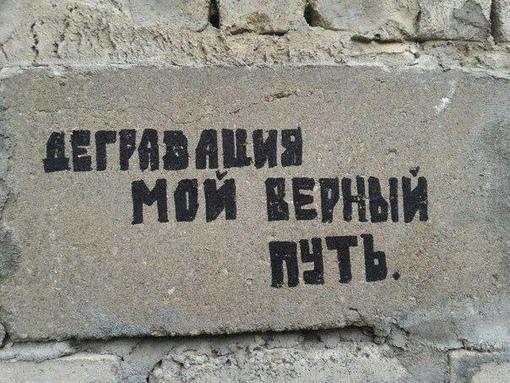 ДЕГРАВАЦИЯ
МОЙ ВЕРНЫЙ
ПУТЬ.